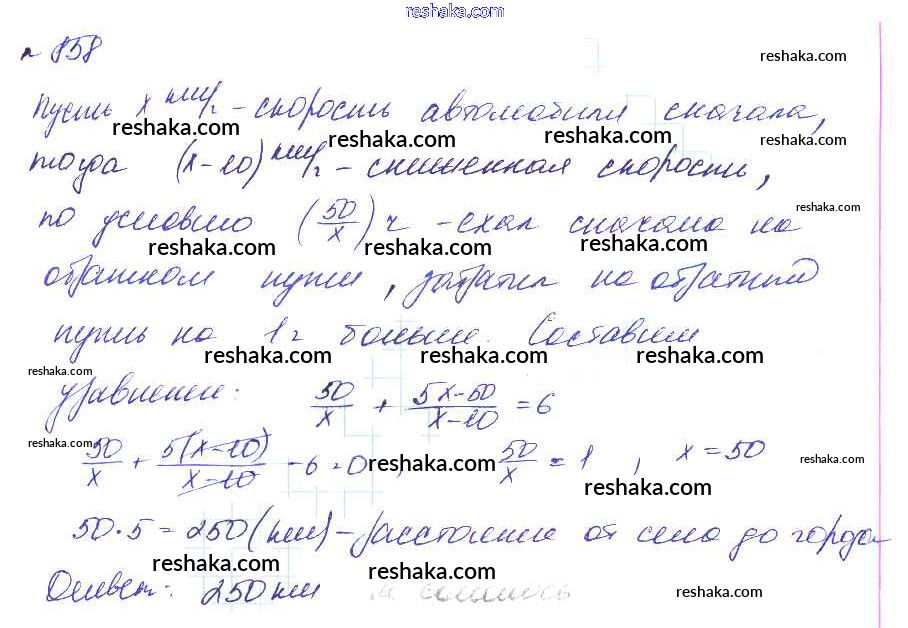 reshaka.com
№ 858
reshaka.com
Пусть x км/ч – скорость автомобиля сначала,
reshaka.com reshaka.com reshaka.com reshaka.com
тогда (x – 10) км/ч – сниженная скорость,
по условию (50/x) ч – ехал сначала на
reshaka.com
reshaka.com reshaka.com reshaka.com
обратном пути, затратил на обратный
путь на 1 ч больше. Составим
reshaka.com reshaka.com reshaka.com
reshaka.com
уравнение: 50/x + (5x – 50)/(x – 10) = 6
reshaka.com
50/x + 5(x – 10)/(x – 10) – 6 = 0, 50/x = 1, x = 50
reshaka.com reshaka.com
reshaka.com
50 · 5 = 250 (км) – расстояние от села до города
reshaka.com reshaka.com reshaka.com
Ответ: 250 км
reshaka.com